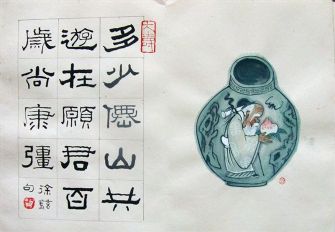 多少僊山共
遊在願君百
歲尚康彊
徐鉉句